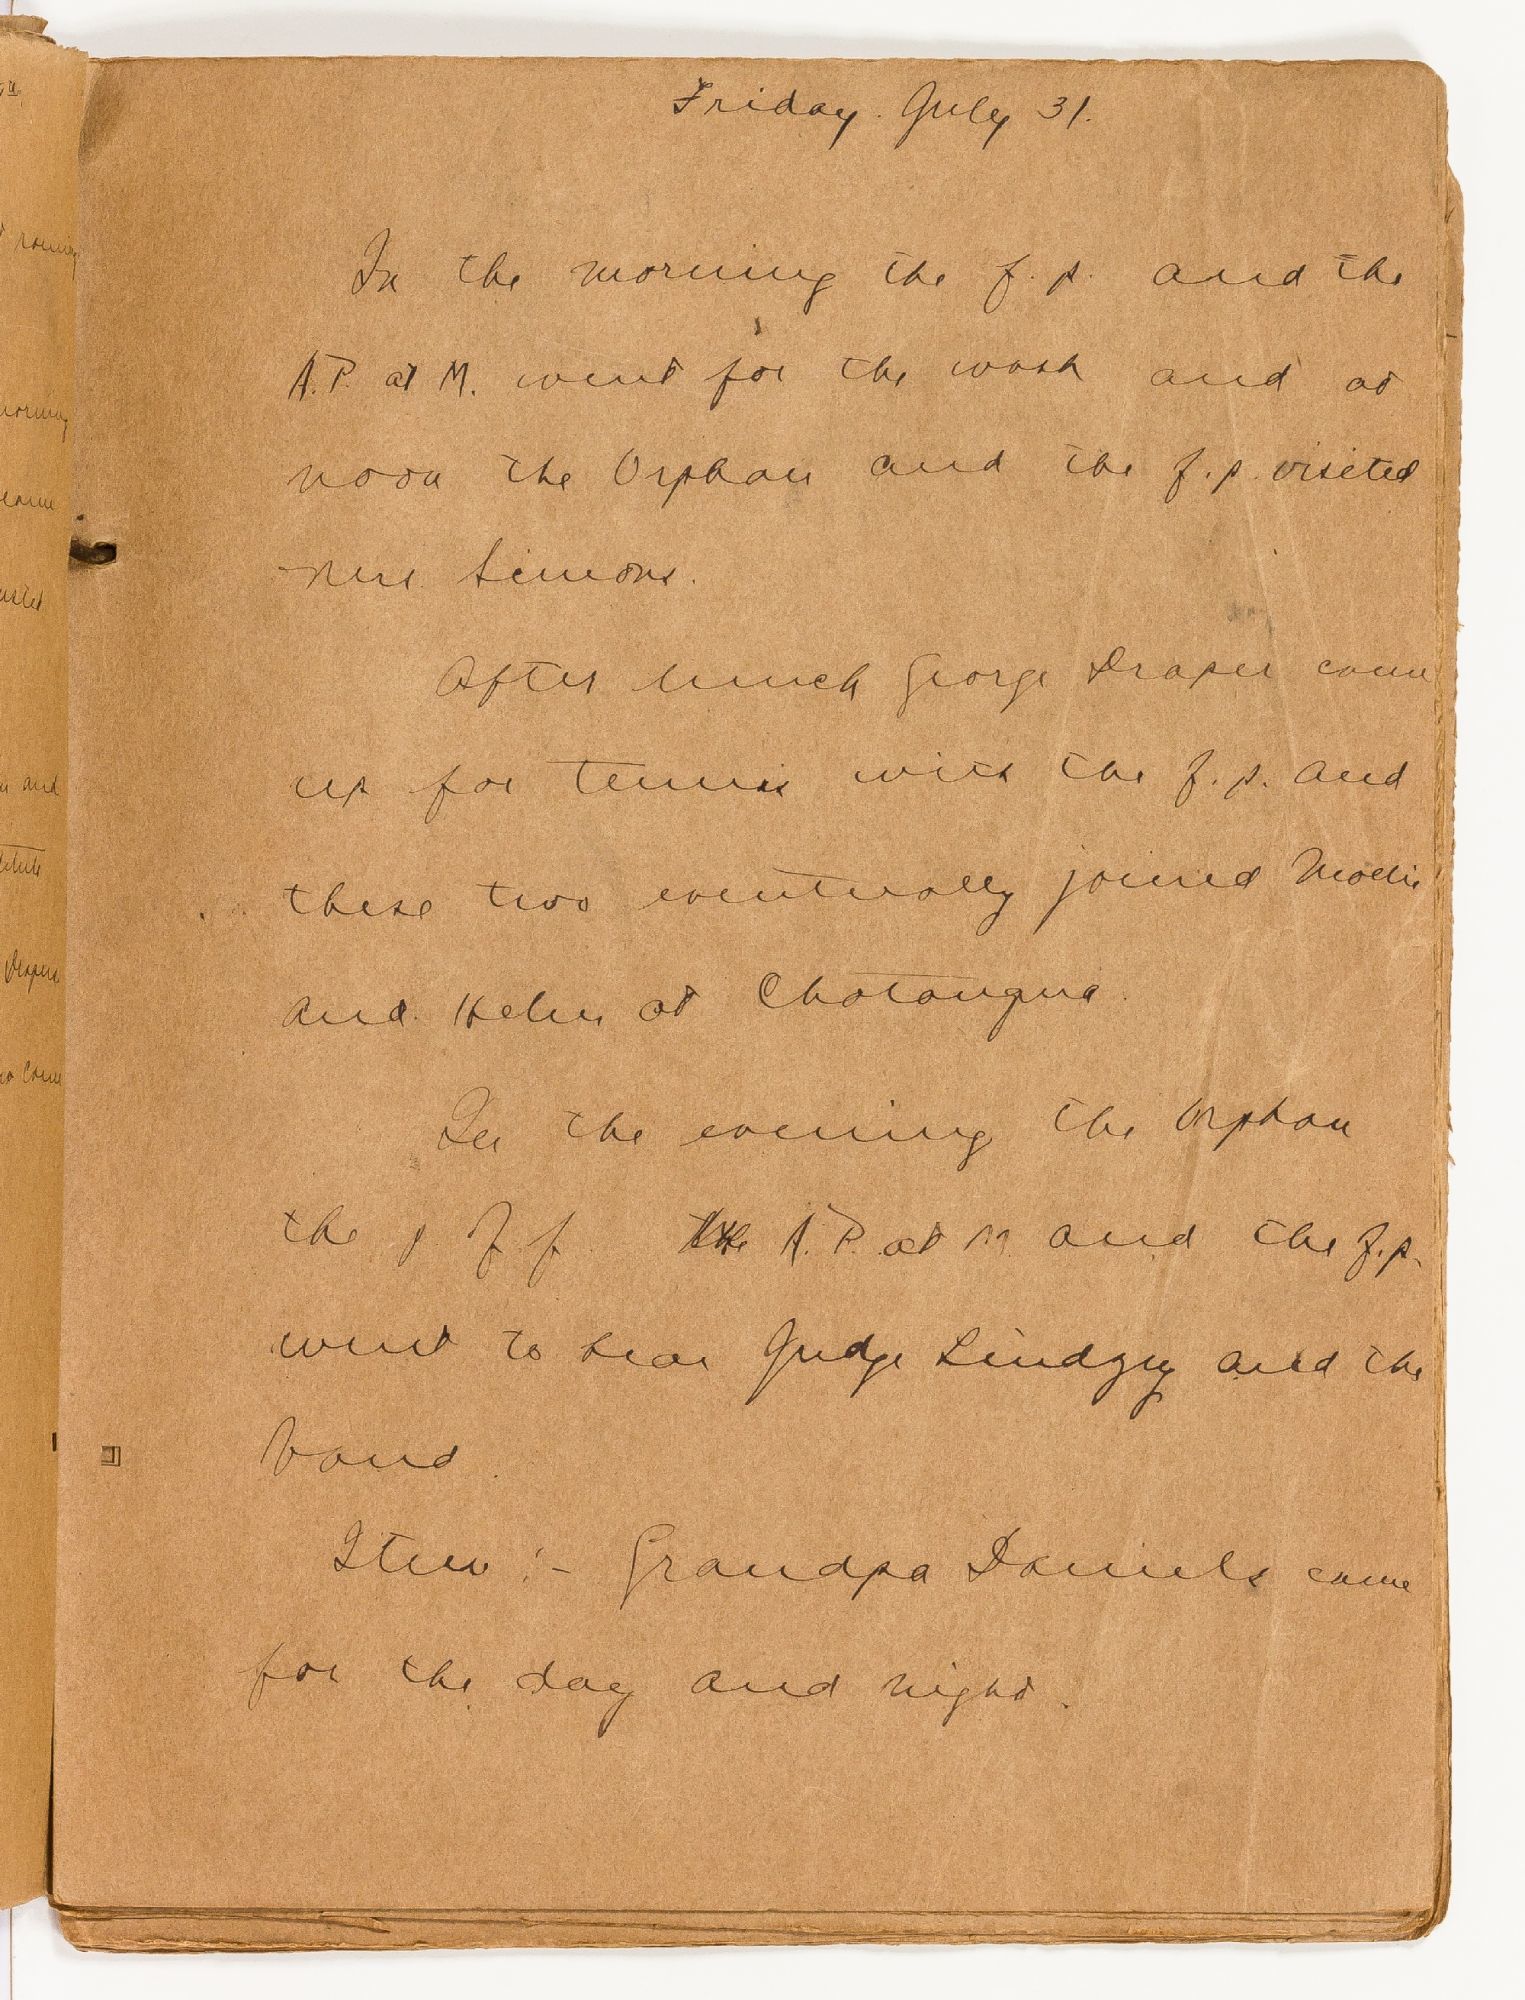 Friday. July 31.
In the morning the f. p. and the
A.P. at M. went for the wash and at
noon the Orphan and the f. p. visited
Mrs. Simons.
After lunch George Draper came
up for tennis with the f. p. and
these two eventually joined Mollie
and Helen at Chatauqua.
In the evening the Orphan
the p. f. f. the A. P. at M. and the f. p.
went to hear Judge Lindzey and the
band.
Item :- Grandpa Daniels came
for the day and night.
morning
and
Drapers